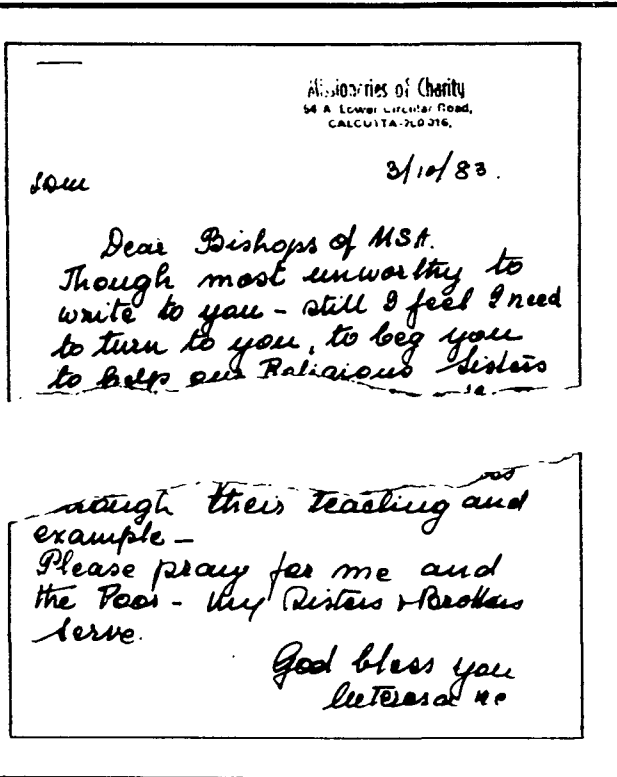 Missionaries of Charity
54 A Lower Circular Road,
CALCUTTA-700016.
3/10/83.
LDM
Dear Bishops of USA.
Though most unworthy to
write to you – still I feel I need
to turn to you, to beg you
to help our Religious Sisters
through their teaching and
example –
Please pray for me and
the Poor – my Sisters & Brothers
serve.
God bless you
M Teresa MC